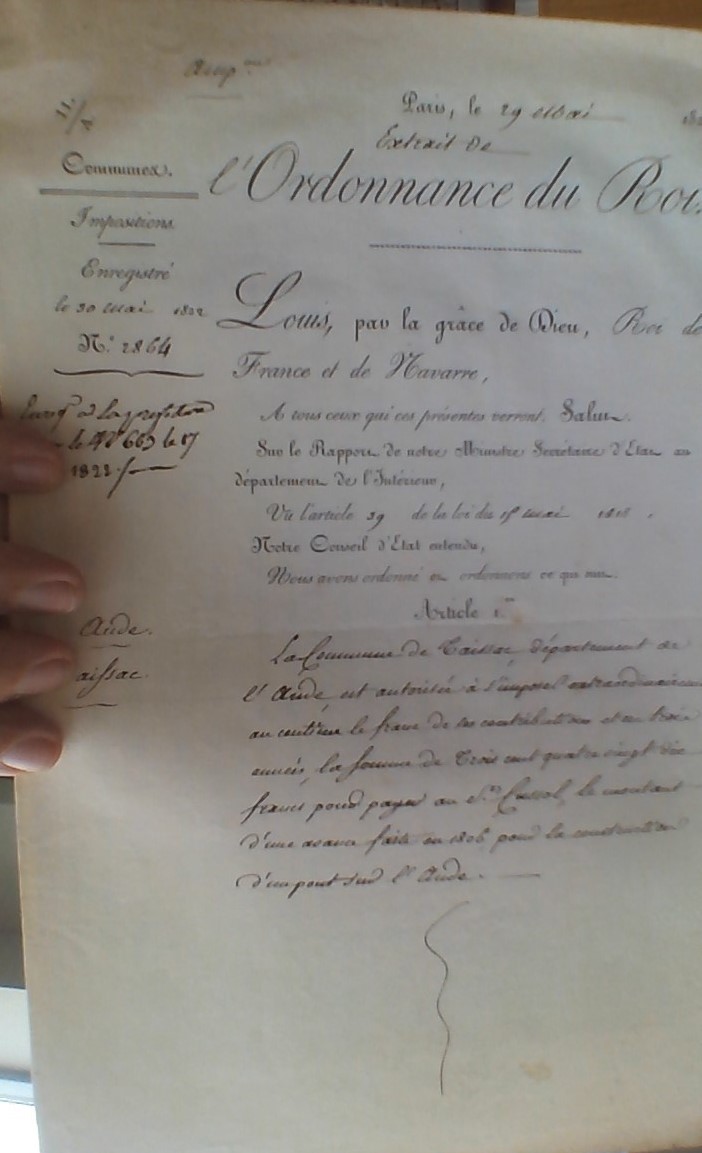 Amp.on
11/4
Paris, le 29 Mai 182
Extrait de
l'Ordonnance du Roi.
Communes.
Impositions.
Enregistré
le 30 Mai 1822
N.° 2864
Louis, par la grâce de Dieu, Roi de
France et de Navarre,
A tous ceux qui ces présentes verront, Salut.
Sur le Rapport de notre Ministre Secrétaire d'Etat au
département de l'Intérieur,
Vu l'article 39 de la loi du 15 mai 1818,
Notre Conseil d'Etat entendu,
Nous avons ordonné et ordonnons ce qui suit.
le N° 663 le 17
1822
Aude.
aissac.
Article 1.er
La Commune de Taissac, département de
l'Aude, est autorisée à s'imposer extraordinairem
au centime le franc de ses contributions et en trois
années, la somme de Trois cent quatre vingt dix
francs pour payer au S.r Cussol, le montant
d'une avance faite en 1806 pour la construction
d'un pont sur l'Aude.